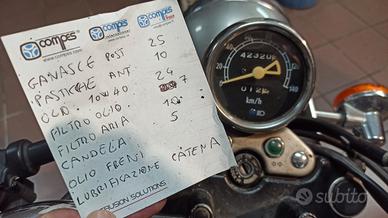 compes compes compes
www.compes.com
GANASCE POST 25
PASTICHE ANT 10
OLIO 10W40 24
FILTRO OLIO 7
FILTRO ARIA
CANDELA 5
OLIO FRENI
LUBRIFICAZIONE CATENA
FUSION SOLUTIONS
42320
012
km/h
140
subito